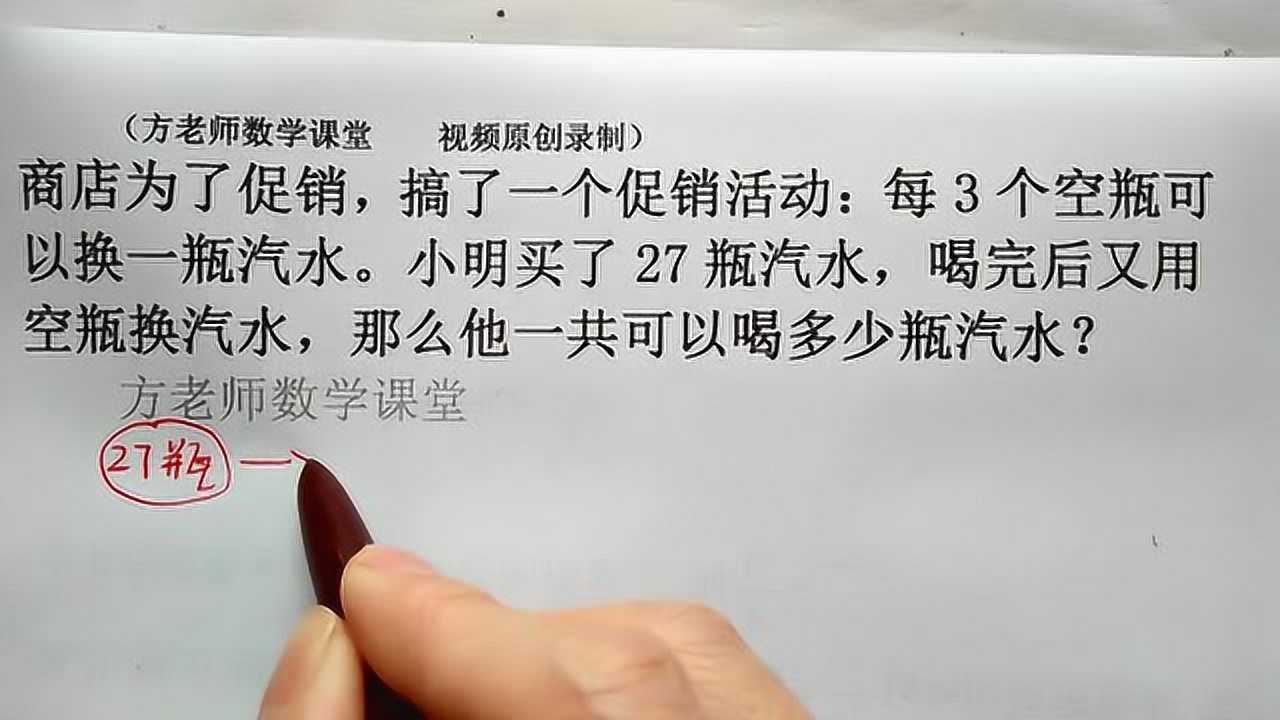 （方老师数学课堂 视频原创录制）
商店为了促销，搞了一个促销活动：每 3 个空瓶可
以换一瓶汽水。小明买了 27 瓶汽水，喝完后又用
空瓶换汽水，那么他一共可以喝多少瓶汽水？
方老师数学课堂
27瓶